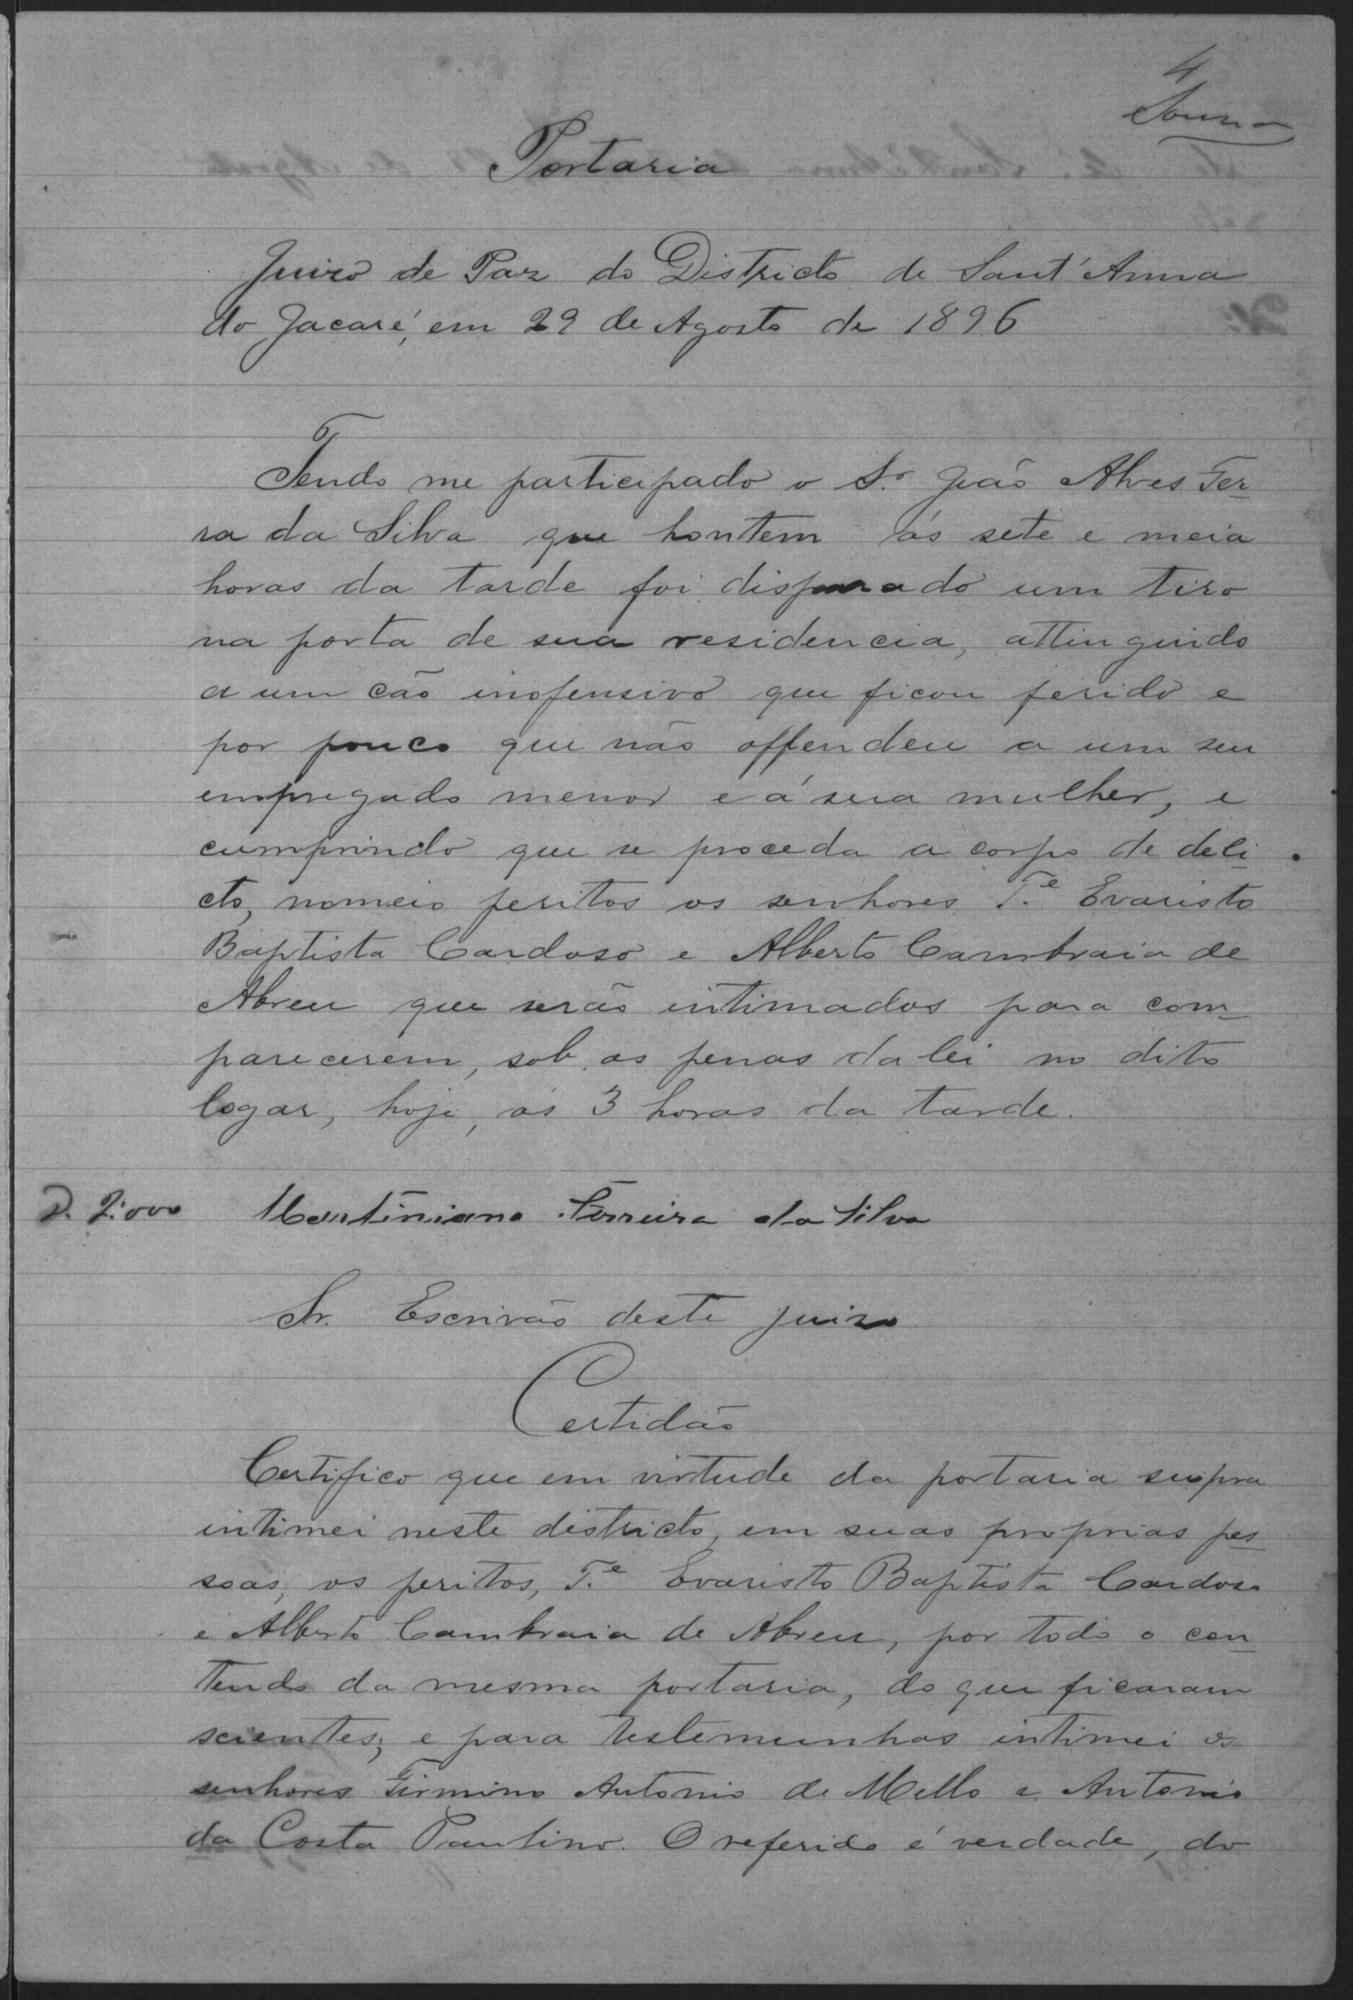 4
Souza
Portaria
Juizo de Paz do Districto de Sant'Anna
do Jacaré, em 29 de Agosto de 1896
Tendo me participado o Sr. João Alves Ter-
ra da Silva que hontem ás sete e meia
horas da tarde foi disparado um tiro
na porta de sua residencia, attinguido
a um cão inofensivo que ficou ferido e
por pouco que não offendeu a um seu
empregado menor e á sua mulher, e
cumprindo que se proceda a corpo de deli-
cto, nomeio peritos os senhores T.e Evaristo
Baptista Cardoso e Alberto Cambraia de
Abreu que serão intimados para com-
parecerem, sob as penas da lei no dito
logar, hoje, ás 3 horas da tarde.
D. 2:000 Martiniano Ferreira da Silva
Sr. Escrivão deste juizo
Certidão
Certifico que em virtude da portaria supra
intimei neste districto, em suas proprias pes-
soas, os peritos, T.e Evaristo Baptista Cardoso
e Alberto Cambraia de Abreu, por todo o con-
tendo da mesma portaria, do que ficaram
scientes; e para testemunhas intimei os
senhores Firmino Antonio de Mello e Antonio
da Costa Paulino. O referido é verdade, do